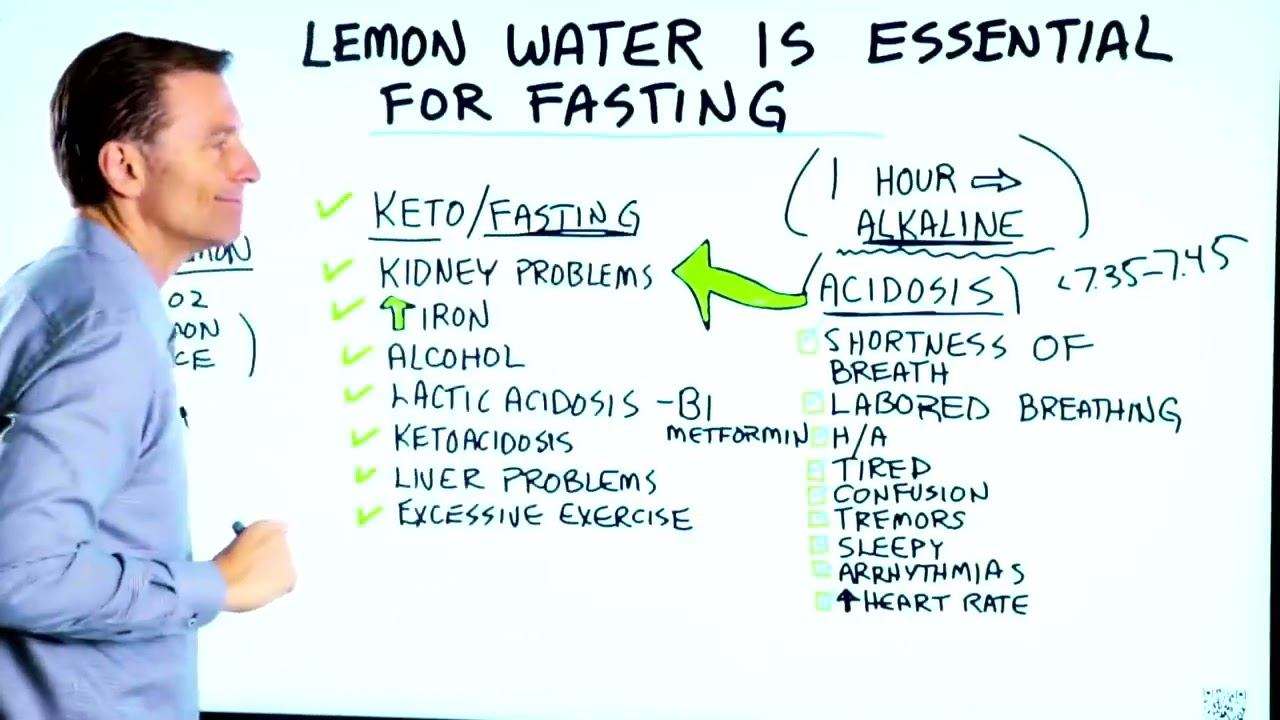 LEMON WATER IS ESSENTIAL
FOR FASTING
02
KETO/FASTING
KIDNEY PROBLEMS
⬆ IRON
ALCOHOL
LACTIC ACIDOSIS - B1
METFORMIN
KETOACIDOSIS
LIVER PROBLEMS
EXCESSIVE EXERCISE
(1 HOUR ⇨
ALKALINE)
(ACIDOSIS) <7.35-7.45
SHORTNESS OF
BREATH
LABORED BREATHING
H/A
TIRED
CONFUSION
TREMORS
SLEEPY
ARRHYTHMIAS
↑ HEART RATE